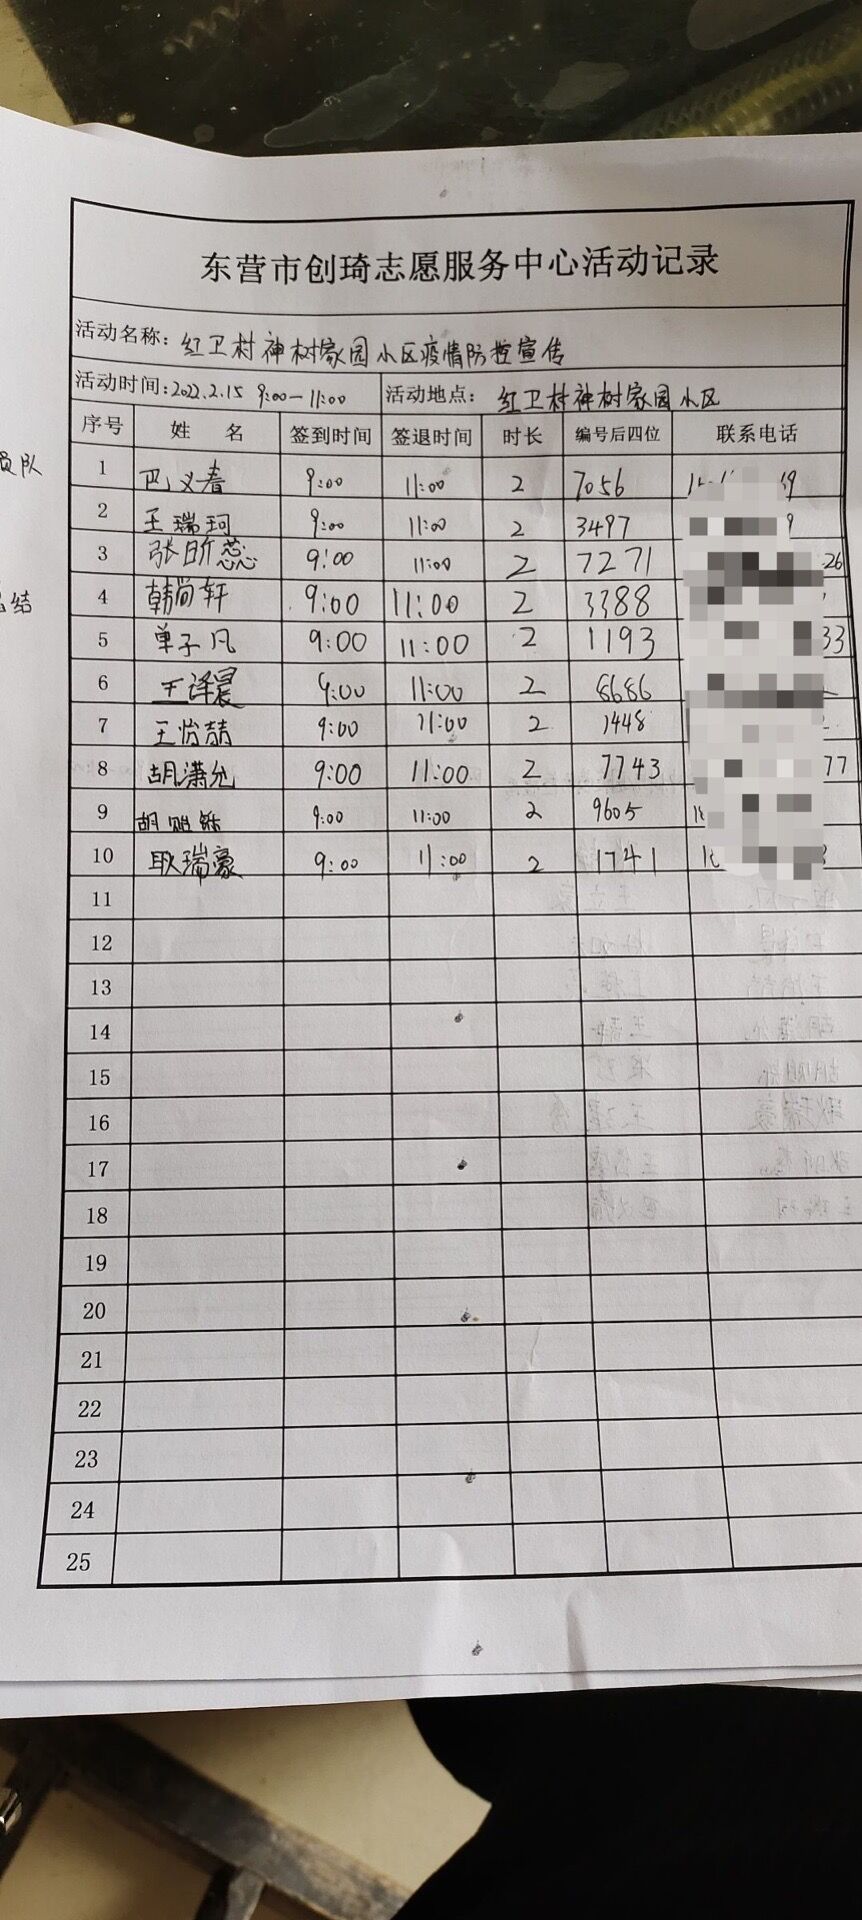 东营市创琦志愿服务中心活动记录
活动名称：红卫村神树家园小区疫情防控宣传
活动时间：2022.2.15 9:00—11:00 活动地点：红卫村神树家园小区
序号 姓 名 签到时间 签退时间 时长 编号后四位 联系电话
1 巴义春 9:00 11:00 2 7056
2 王瑞珂 9:00 11:00 2 3497
3 张昕蕊 9:00 11:00 2 7271 26
4 韩尚轩 9:00 11:00 2 3388
5 单子凡 9:00 11:00 2 1193 33
6 王译晨 9:00 11:00 2 8686
7 王 9:00 11:00 2 1448
8 胡潇允 9:00 11:00 2 7743 77
9 胡 9:00 11:00 2 9605
10 耿瑞豪 9:00 11:00 2 1741
11
12
13
14
15
16
17
18
19
20
21
22
23
24
25
员队
总结